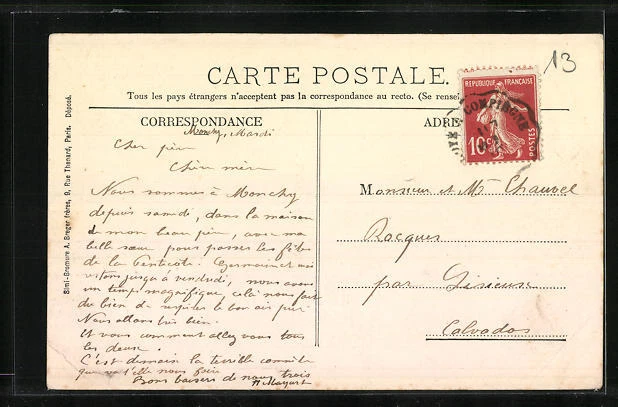 13
CARTE POSTALE.
Tous les pays étrangers n'acceptent pas la correspondance au recto. (Se rensei
CORRESPONDANCE
ADRE
REPUBLIQUE FRANÇAISE
10c
POSTES
COMPIEGNE
Simi-Bromure A. Breger frères, 9, Rue Thenard, Paris. Déposé.
Monchy, Mardi
Cher père
Chère mère
Nous sommes à Monchy
depuis samedi, dans la maison
de mon beau père, avec ma
belle sœur pour passer les fêtes
de la Pentecôte. Germaine et moi
restons jusqu'à vendredi, nous avons
un temps magnifique, celà nous fait
du bien de respirer le bon air pur
Nous allons très bien.
Et vous comment allez vous tous
les deux.
C'est demain la terrible comète
que va t'elle nous faire
Bons baisers de nous trois
Monsieur et Me Chauvel
Rocques
par Lisieux
Calvados